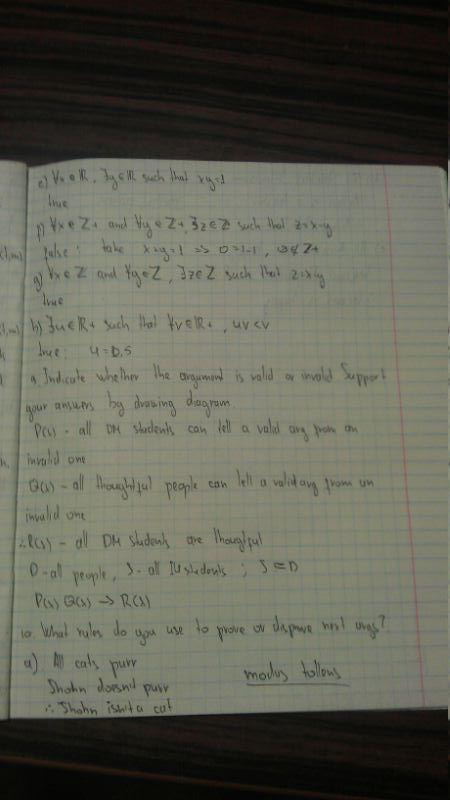 e) ∀x∈ℝ, ∃y∈ℝ such that xy=1
true
f) ∀x∈Z+ and ∀y∈Z+, ∃z∈Z such that z=x-y
false: take x=y=1 => 0=1-1, 0∉Z+
g) ∀x∈Z and ∀y∈Z, ∃z∈Z such that z=x-y
true
h) ∃u∈ℝ+ such that ∀v∈ℝ+, uv<v
true: u=0,5
9. Indicate whether the argument is valid or invalid Support
your answers by drawing diagram.
P(s) - all DM students can tell a valid arg from an
invalid one
Q(s) - all thoughtful people can tell a valid arg from an
invalid one
∴R(s) - all DM students are thougtful
D-all people, S-all students; S⊂D
P(s) Q(s) → R(s)
10. What rules do you use to prove or disprove next args?
a) All cats purr
Shohn doesn't purr modus tollens
∴ Shohn isn't a cat